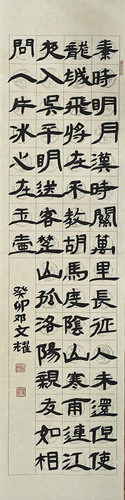 秦時明月漢時關萬里長征人未還但使
龍城飛將在不教胡馬度陰山寒雨連江
夜入吳平明送客楚山孤洛陽親友如相
問一片冰心在玉壺
癸卯邓文耀